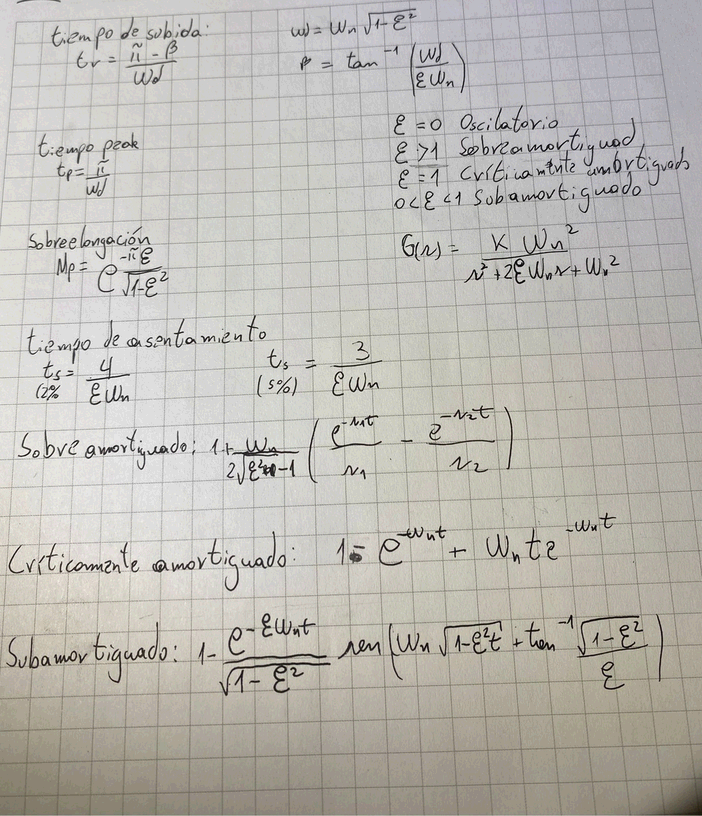 tiempo de subida:
tr = (π - β) / ωd
ωd = ωn √(1-ξ²)
β = tan⁻¹ (ωd / ξωn)
ξ = 0 Oscilatorio
ξ > 1 Sobreamortiguad
ξ = 1 Críticamente amortiguado
0 < ξ < 1 Subamortiguado
tiempo peak
tp = π / ωd
Sobreelongación
Mp = e^(-πξ / √(1-ξ²))
G(s) = K ωn² / (s² + 2ξωns + ωn²)
tiempo de asentamiento
ts = 4 / ξωn
(2%
ts = 3 / ξωn
(5%)
Sobre amortiguado: 1 + ωn / (2√(ξ²-1)) (e^(-s1t) / s1 - e^(-s2t) / s2)
Críticamente amortiguado: 1 - e^(-ωnt) + ωnte^(-ωnt)
Subamortiguado: 1 - e^(-ξωnt) / √(1-ξ²) sen(ωn √(1-ξ²t) + tan⁻¹ √(1-ξ²) / ξ)